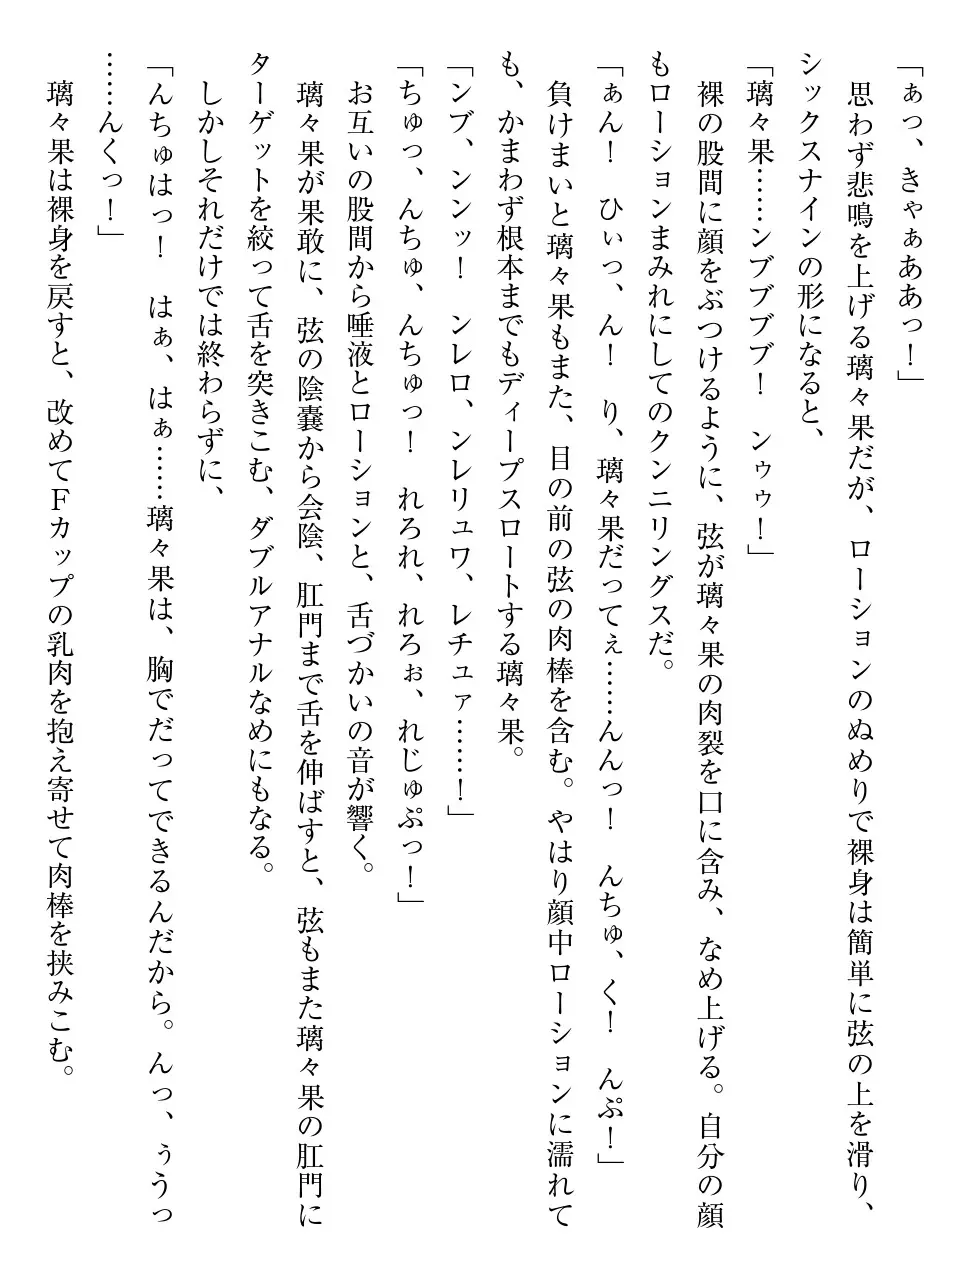 「ぁっ、きゃぁああっ！」
　思わず悲鳴を上げる璃々果だが、ローションのぬめりで裸身は簡単に弦の上を滑り、
シックスナインの形になると、
「璃々果……ンブブブブ！　ンゥゥ！」
　裸の股間に顔をぶつけるように、弦が璃々果の肉裂を口に含み、なめ上げる。自分の顔
もローションまみれにしてのクンニリングスだ。
「ぁん！　ひぃっ、ん！　り、璃々果だってぇ……んんっ！　んちゅ、く！　んぷ！」
　負けまいと璃々果もまた、目の前の弦の肉棒を含む。やはり顔中ローションに濡れて
も、かまわず根本までもディープスロートする璃々果。
「ンブ、ンンッ！　ンレロ、ンレリュワ、レチュァ……！」
「ちゅっ、んちゅ、んちゅっ！　れろれ、れろぉ、れじゅぷっ！」
　お互いの股間から唾液とローションと、舌づかいの音が響く。
　璃々果が果敢に、弦の陰嚢から会陰、肛門まで舌を伸ばすと、弦もまた璃々果の肛門に
ターゲットを絞って舌を突きこむ、ダブルアナルなめにもなる。
　しかしそれだけでは終わらずに、
「んちゅはっ！　はぁ、はぁ……璃々果は、胸でだってできるんだから。んっ、ぅうっ
……んくっ！」
　璃々果は裸身を戻すと、改めてＦカップの乳肉を抱え寄せて肉棒を挟みこむ。